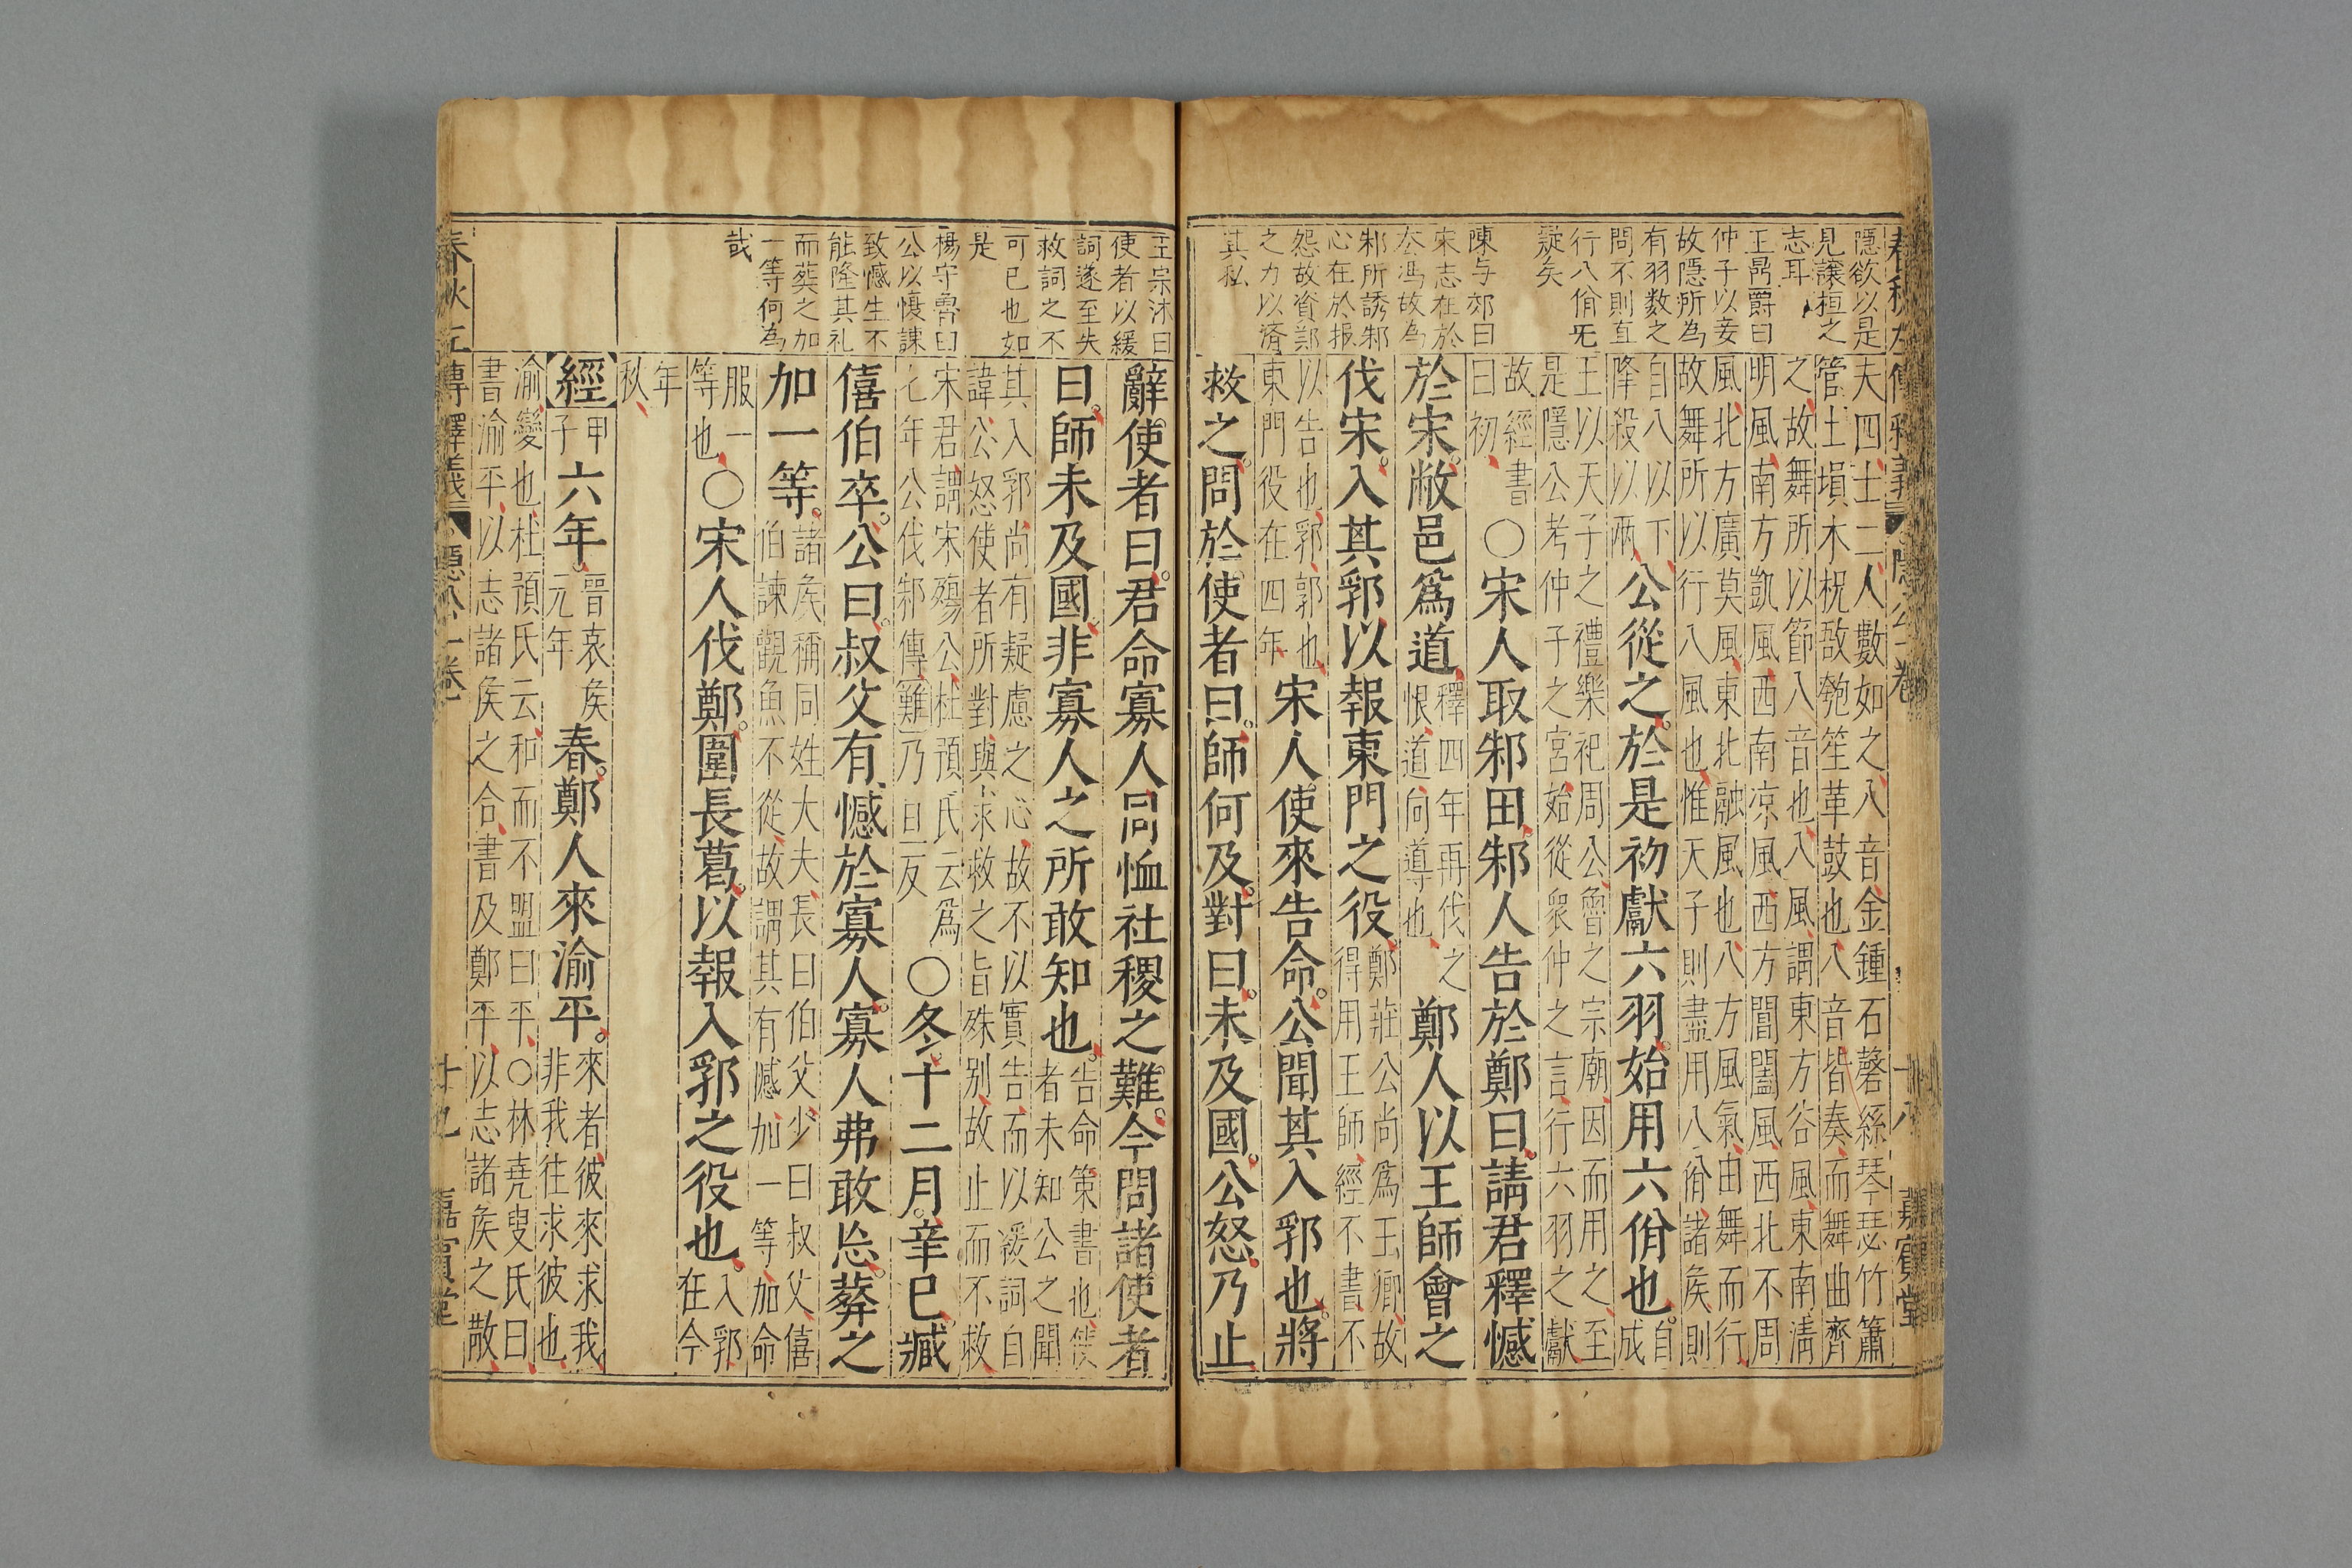 隱欲以是
見讓桓之
志耳
王爵曰
仲子以妾
故隱所為
有羽數之
問不則直
行八佾旡
疑矣
陳与郊曰
宋志在於
公馮故為
邾所誘邾
心在於报
怨故資鄭
之力以濟
其私
夫四士二人數如之八音金鍾石磬絲琴瑟竹簫
管土塤木柷敔匏笙革鼓也八音皆奏而舞曲齊
之故舞所以節八音也八風謂東方谷風東南清
明風南方凱風西南凉風西方閶闔風西北不周
風北方廣莫風東北融風也八方風氣由舞而行
故舞所以行八風也惟天子則盡用八佾諸矦則
自八以下
降殺以兩
公從之於是初獻六羽始用六佾也
自成
王以天子之禮樂祀周公魯之宗廟因而用之至
是隱公考仲子之宮始從衆仲之言行六羽之獻
故經書
曰初
○宋人取邾田邾人告於鄭曰請君釋憾
於宋敝邑爲道
釋四年再伐之
恨道向導也
鄭人以王師會之
伐宋入其郛以報東門之役
鄭莊公尚爲王卿故
得用王師經不書不
以告也郛郭也
東門役在四年
宋人使來告命公聞其入郛也將
救之問於使者曰師何及對曰未及國公怒乃止
春秋左傳釋義
隱公一卷
十八
嘉賓堂
王宗沐曰
使者以緩
詞遂至失
救詞之不
可已也如
是
楊守魯曰
公以憾諫
致憾生不
能隆其礼
而葬之加
一等何為
哉
辭使者曰君命寡人同恤社稷之難今問諸使者
曰師未及國非寡人之所敢知也
告命策書也使
者未知公之聞
其入郛尚有疑慮之心故不以實告而以緩詞自
諱公怒使者所對與求救之旨殊別故止而不救
宋君謂宋殤公杜預氏云爲
七年公伐邾傳難乃旦反
○冬十二月辛巳臧
僖伯卒公曰叔父有憾於寡人寡人弗敢忘葬之
加一等
諸矦稱同姓大夫長曰伯父少曰叔父僖
伯諫觀魚不從故謂其有憾加一等加命
服一
等也
○宋人伐鄭圍長葛以報入郛之役也
入郛
在今
年
秋
經
甲
子
六年
晉哀矦
元年
春鄭人來渝平
來者彼來求我
非我往求彼也
渝變也杜預氏云和而不盟曰平○林堯叟氏曰
書渝平以志諸矦之合書及鄭平以志諸矦之散